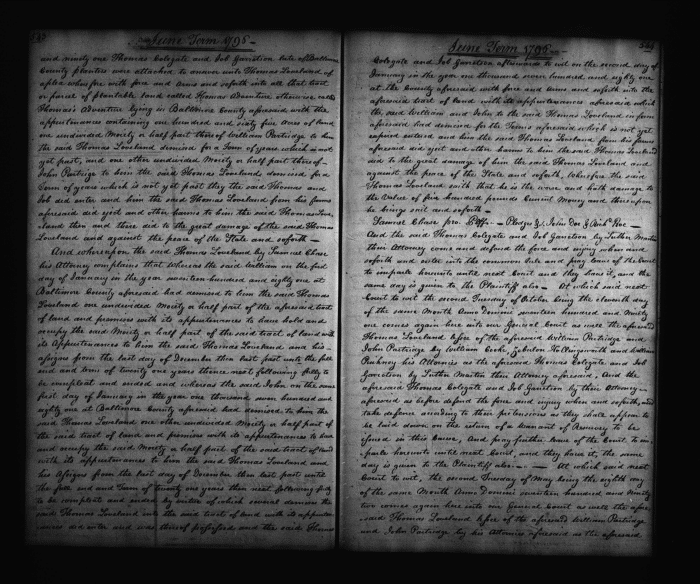 June Term 1798
and ninety one Thomas Colegate and Job Garretson late of Baltimore
County planters were attached to answer unto Thomas Loveland of
a plea wherefore with force and Arms and soforth all that tract
or parcel of plantable land called Thomas Adventure otherwise called
Thomas's Adventure lying in Baltimore County aforesaid with the
appurtenances containing one hundred and sixty five Acres of land
one undivided Moiety a half part thereof William Partridge to him
the said Thomas Loveland demised for a Term of years which is not
yet past, and one other undivided Moiety or half part thereof
John Partridge to him the said Thomas Loveland demised for a
Term of years which is not yet past they the said Thomas and
Job did enter and him the said Thomas Loveland from his farms
aforesaid did eject and other harms to him the said Thomas Love
land then and there did to the great damage of the said Thomas
Loveland and against the peace of the State and soforth
And whereupon the said Thomas Loveland by Samuel Chase
his Attorney complains that whereas the said William on the first
day of January in the year seventeen hundred and eighty one at
Baltimore County aforesaid had demised to him the said Thomas
Loveland one undivided Moiety a half part of the aforesaid tract
of land and premises with its appurtenances to have hold and
occupy the said Moiety a half part of the said tract of land with
its Appurtenances to him the said Thomas Loveland and his
assigns from the last day of December then last past unto the full
end and term of twenty one years thence next following fully to
be compleat and ended and whereas the said John on the same
first day of January in the year one thousand seven hundred and
eighty one at Baltimore County aforesaid had demised to him the
said Thomas Loveland one other undivided Moiety a half part of
the said tract of land and premises with its appurtenances to have
and occupy the said Moiety a half part of the said tract of land
with its appurtenances to him the said Thomas Loveland and
his Assigns from the last day of December then last past unto
the full end and Term of twenty one years then next following fully
to be compleat and ended by virtue of which several demises the
said Thomas Loveland into the said tract of land with its appurten
ances did enter and was thereof possessed and the said Thomas
June Term 1798
Colegate and Job Garretson afterwards to wit on the second day of
January in the year one thousand seven hundred and eighty one
at the County aforesaid with force and Arms and soforth into the
aforesaid tract of land with its appurtenances aforesaid which
the said William and John to the said Thomas Loveland in form
aforesaid had demised for the Terms aforesaid which is not yet
expired entered and him the said Thomas Loveland from his farm
aforesaid did eject and other harms to him the said Thomas Loveland
did to the great damage of him the said Thomas Loveland and
against the peace of the State and soforth, Wherefore the said
Thomas Loveland saith that he is the worse and hath damage to
the Value of five hundred pounds Current Money and thereupon
he brings suit and soforth
Samuel Chase pro. Plffs Pledges &c. John Doe & Rich'd Roe
And the said Thomas Colegate and Job Garretson by Luther Martin
their Attorney come and defend the force and injury when and
soforth and enter into the common rule and pray leave of the Court
to imparle hereunto until next Court and they have it, and the
same day is given to the Plaintiff also At which said next
Court to wit the second Tuesday of October being the eleventh day
of the same Month Anno Domini seventeen hundred and ninety
one comes again here into our General Court as well the aforesaid
Thomas Loveland lessee of the aforesaid William Partridge and
John Partridge by William Cooke, Zebulon Hollingsworth and William
Pinkney his Attornies as the aforesaid Thomas Colegate and Job
Garretson by Luther Martin their Attorney aforesaid. And the
aforesaid Thomas Colegate and Job Garretson by their Attorney
aforesaid as before defend the force and injury when and soforth, and
take defence according to their pretensions as they shall appear to
be laid down on the return of a warrant of Resurvey to be
issued in this cause, And pray further leave of the Court to im
parle hereunto until next Court, and they have it, the same
day is given to the Plaintiff also At which said next
Court to wit, the second Tuesday of May being the eighth day
of the same Month Anno Domini seventeen hundred and ninety
two comes again here into our General Court as well the afore
said Thomas Loveland lessee of the aforesaid William Partridge
and John Partridge by his Attornies aforesaid as the aforesaid